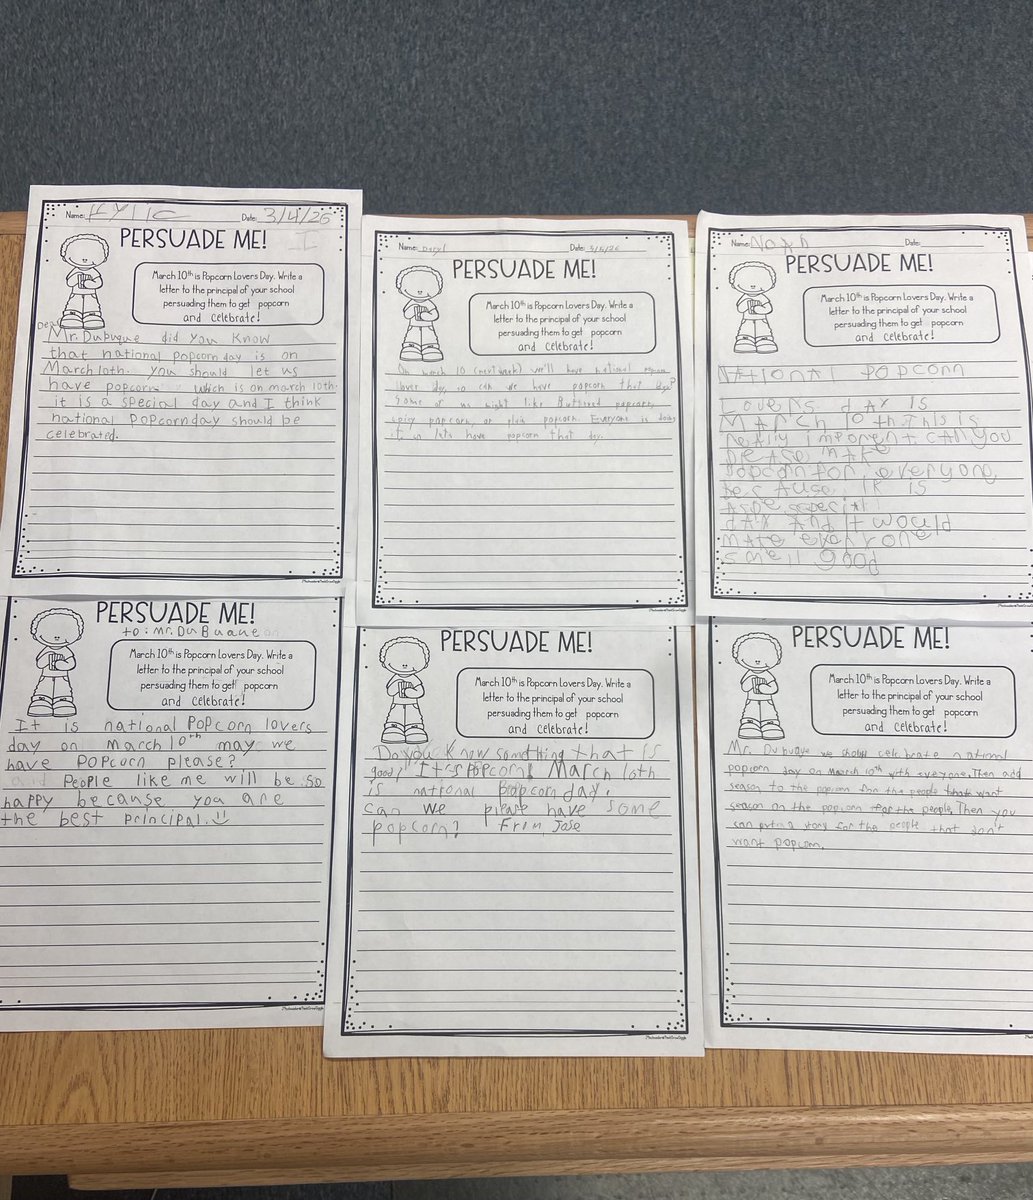 Name: Kylie Date: 3/4/26
PERSUADE ME!
March 10th is Popcorn Lovers Day. Write a
letter to the principal of your school
persuading them to get popcorn
and celebrate!
Dear
Mr. Dubuque did you know
that national popcorn day is on
March 10th. you should let us
have popcorn which is on march 10th.
it is a special day and I think
national Popcorn day should be
celebrated.
Name: Daryl Date: 3/5/26
PERSUADE ME!
March 10th is Popcorn Lovers Day. Write a
letter to the principal of your school
persuading them to get popcorn
and celebrate!
On march 10 (next week) we'll have national popcorn
lover day, so can we have popcorn that day?
Some of us might like Buttered popcorn,
spicy popcorn, or plain popcorn. Everyone is doing
it so lets have popcorn that day.
Name: Noah Date:
PERSUADE ME!
March 10th is Popcorn Lovers Day. Write a
letter to the principal of your school
persuading them to get popcorn
and celebrate!
NAtional popcorn
Lovers dAy is
MArch 10th. This is
really imporent. can you
please make
popcorn for everyone
becAuse it is
dAy And it would
mAke everyone
smell good
PERSUADE ME!
to: Mr. DuBuque
March 10th is Popcorn Lovers Day. Write a
letter to the principal of your school
persuading them to get popcorn
and celebrate!
It is national POPcorn lovers
day on march 10th may we
have POPcorn please?
and People like me will be so
happy because you are
the best principal.
PERSUADE ME!
March 10th is Popcorn Lovers Day. Write a
letter to the principal of your school
persuading them to get popcorn
and celebrate!
Do you know something that is
good? It's popcorn! March 10th
is national popcorn day.
Can we please have some
popcorn? From, Jase
PERSUADE ME!
March 10th is Popcorn Lovers Day. Write a
letter to the principal of your school
persuading them to get popcorn
and celebrate!
Mr. Dubuque we should celebrate national
popcorn day on March 10th with everyone. Then add
season to the popcorn for the people that want
season on the popcorn for the people. Then you
can for the people that don't
want popcorn.